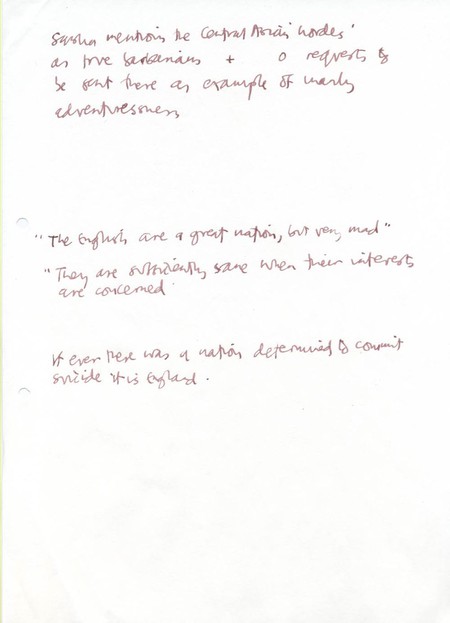 Sasha mentions the Central Asian 'hordes'
as true barbarians + O requests to
be sent there as example of manly
adventuressness
"The English are a great nation, but very mad"
"They are sufficiently sane when their interests
are concerned.
If ever there was a nation determined to commit
suicide it is England.